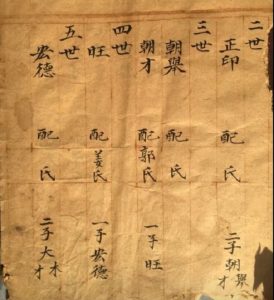 二世
正印 配 氏 二子朝舉才
三世
朝舉 配 氏
朝才 配郭氏 一子旺
四世
旺 配姜氏 一子宏德
五世
宏德 配 氏 二子大木才